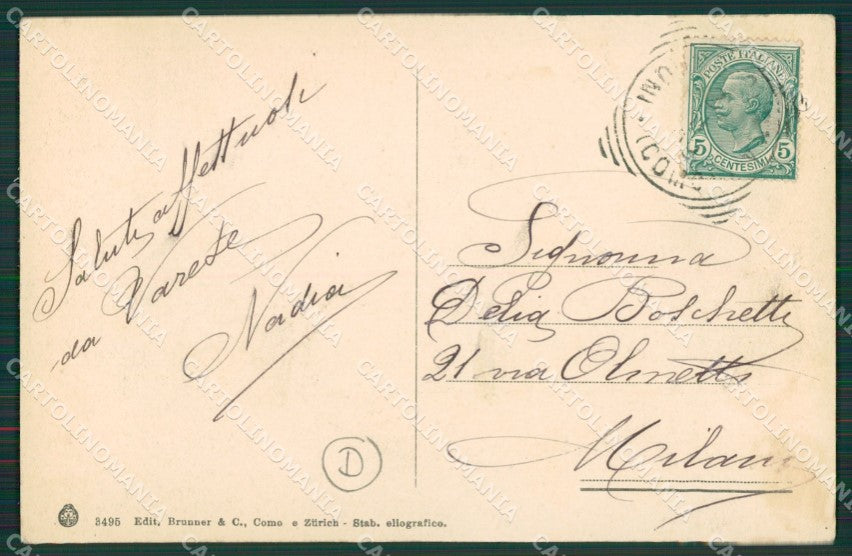 Saluti affettuosi
da Varese
Nadia
POSTE ITALIANE
5 CENTESIMI 5
(COMO)
Signorina
Delia Boschetti
21 via Olmetto
Milano
D
3495 Edit. Brunner & C., Como e Zürich - Stab. eliografico.
CARTOLINOMANIA